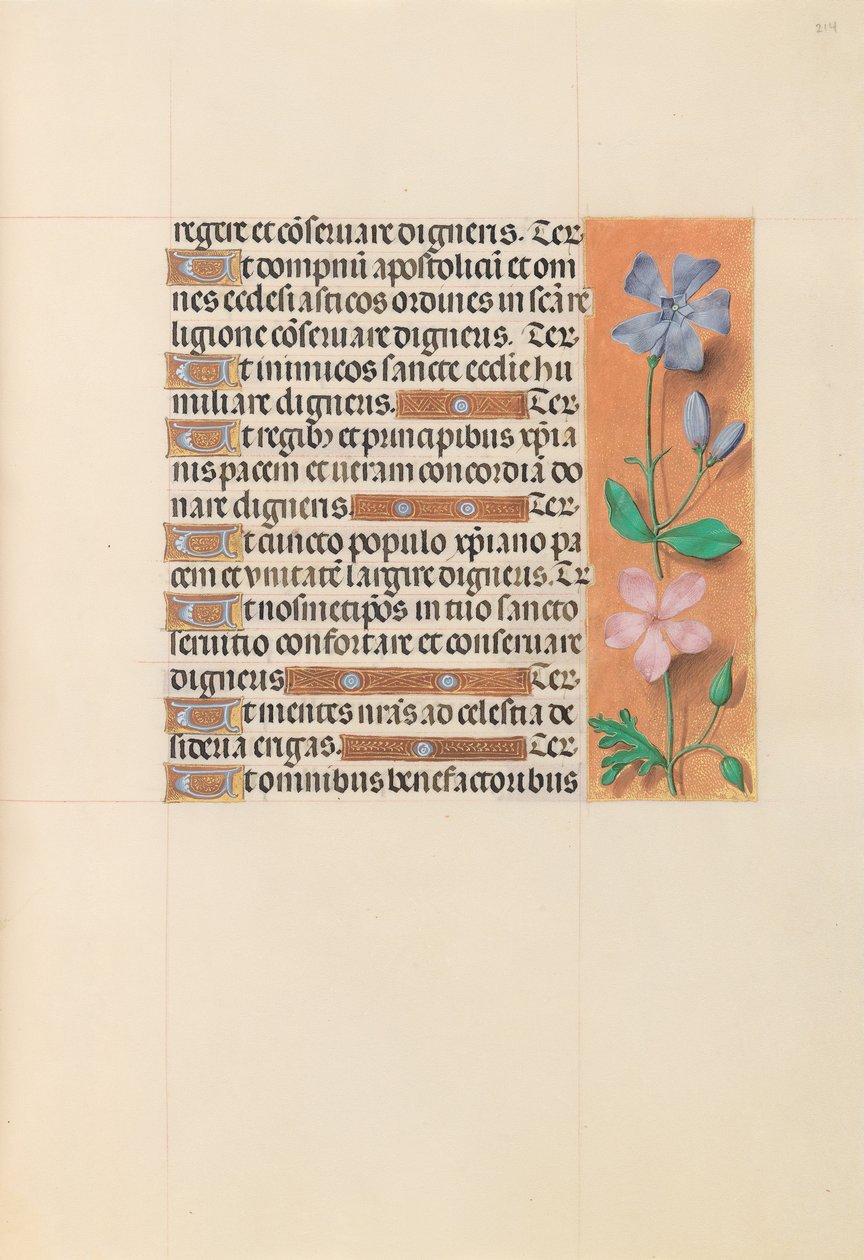 214
regere et cōseruare digneris. Ter
Ut dompnū apostolicū et om
nes ecclesiasticos ordines in scā re
ligione cōseruare digneris. Ter
Ut inimicos sancte ecclīe hu
miliare digneris. Ter
Ut regibꝫ et principibus xp̄ia
nis pacem et ueram concordiā do
nare digneris. Ter
Ut cuncto populo xp̄iano pa
cem et vnitatē largire digneris. Ter
Ut nosmetip̄os in tuo sancto
seruitio confortare et conseruare
digneris Ter
Ut mentes nr̄as ad celestia de
sideria erigas. Ter
Ut omnibus benefactoribus